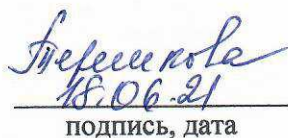 Терешкова
18.06.21
подпись, дата